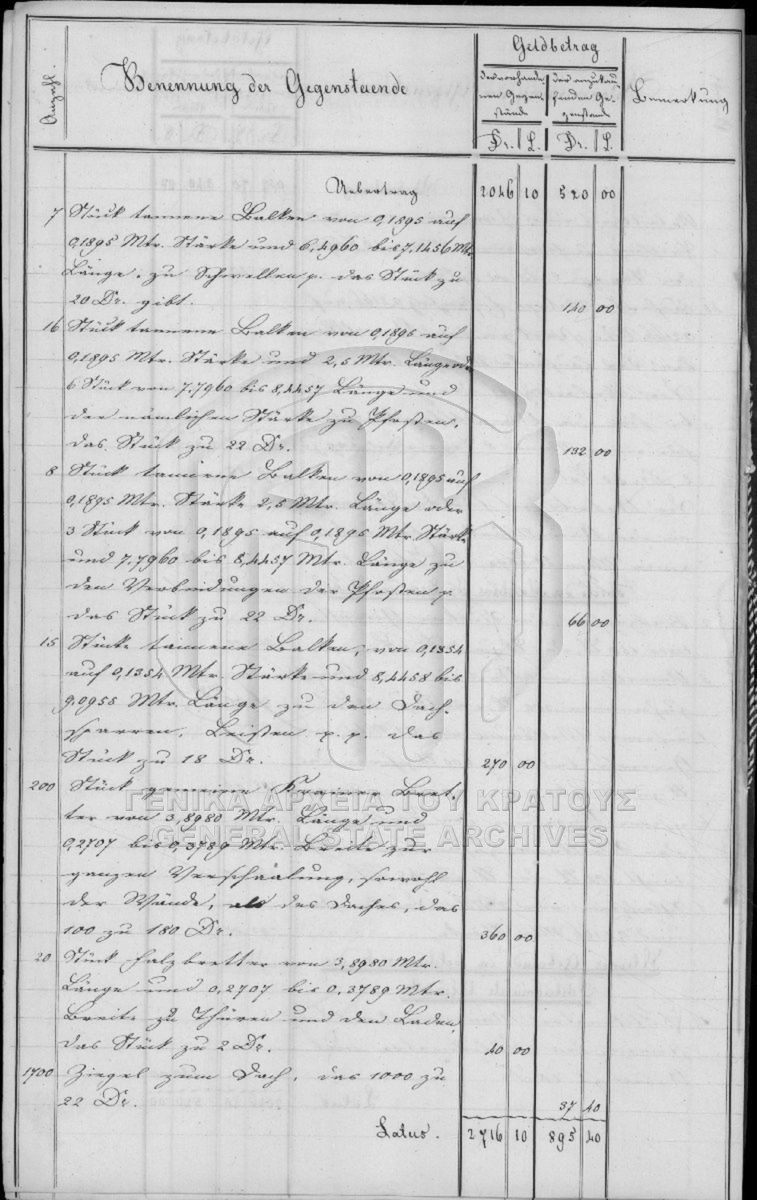 Anzahl.
Benennung der Gegenstaende
Geldbetrag
der vorhande- nen Gegen- stände
der anzukau- fenden Ge- genstand
Bemerkung
Dr. L. Dr. L.
Uebertrag 2046 10 520 00
7 Stück tannene Balken von 0,1895 auf
0,1895 Mtr. Stärke und 6,4960 bis 7,1456 Mtr.
Länge, zu Schwellen p. das Stück zu
20 Dr. gibt. 140 00
16 Stück tannene Balken von 0,1895 auf
0,1895 Mtr. Stärke und 2,5 Mtr. Länge od
6 Stück von 7.7960 bis 8,4457 Länge und
der nämlichen Stärke zu Pfosten,
das Stück zu 22 Dr. 132 00
8 Stück tannene Balken von 0,1895 auf
0,1895 Mtr. Stärke 2,5 Mtr. Länge oder
3 Stück von 0,1895 auf 0,1895 Mtr. Stärke
und 7.7960 bis 8,4457 Mtr. Länge zu
den Verbindungen der Pfosten p.
das Stück zu 22 Dr. 66 00
15 Stücke tannene Balken, von 0,1354
auf 0,1354 Mtr. Stärke und 8,4458 bis
9,0955 Mtr. Länge zu den Dach-
sparren, Leisten p. p. das
Stück zu 18 Dr. 270 00
200 Stück gemeine Krainer Bret-
ter von 3,8980 Mtr. Länge und
0,2707 bis 0,3789 Mtr. Breite zur
ganzen Verschaalung, sowohl
der Wände, als des Daches, das
100 zu 180 Dr. 360 00
20 Stück Falzbretter von 3,8980 Mtr.
Länge und 0,2707 bis 0.3789 Mtr.
Breite zu Thüren und den Laden,
das Stück zu 2 Dr. 40 00
1700 Ziegel zum Dach, das 1000 zu
22 Dr. 37 40
Latus. 2716 10 895 40
ΓΕΝΙΚΑ ΑΡΧΕΙΑ ΤΟΥ ΚΡΑΤΟΥΣ
GENERAL STATE ARCHIVES